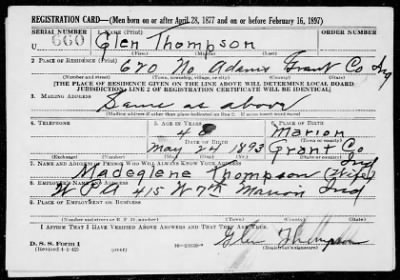 REGISTRATION CARD—(Men born on or after April 28, 1877 and on or before February 16, 1897)
SERIAL NUMBER 1. NAME (Print) ORDER NUMBER
U 660 Glen Thompson
(First) (Middle) (Last)
2. PLACE OF RESIDENCE (Print)
620 No Adams Grant Co Ind
(Number and street) (Town, township, village, or city) (County) (State)
[THE PLACE OF RESIDENCE GIVEN ON THE LINE ABOVE WILL DETERMINE LOCAL BOARD
JURISDICTION; LINE 2 OF REGISTRATION CERTIFICATE WILL BE IDENTICAL]
3. MAILING ADDRESS
Same as above
(Mailing address if other than place indicated on line 2. If same insert word same)
4. TELEPHONE 5. AGE IN YEARS 6. PLACE OF BIRTH
48 Marion
DATE OF BIRTH (Town or county)
May 24 1893 Grant Co Ind
(Exchange) (Number) (Mo.) (Day) (Yr.) (State or country)
7. NAME AND ADDRESS OF PERSON WHO WILL ALWAYS KNOW YOUR ADDRESS
Madeglene Thompson (Wife)
8. EMPLOYER'S NAME AND ADDRESS
W P A 415 W 7th Marion Ind
9. PLACE OF EMPLOYMENT OR BUSINESS
(Number and street or R. F. D. number) (Town) (County) (State)
I AFFIRM THAT I HAVE VERIFIED ABOVE ANSWERS AND THAT THEY ARE TRUE.
D. S. S. Form 1
(Revised 4-1-42) Glen Thompson
(Registrant's signature)